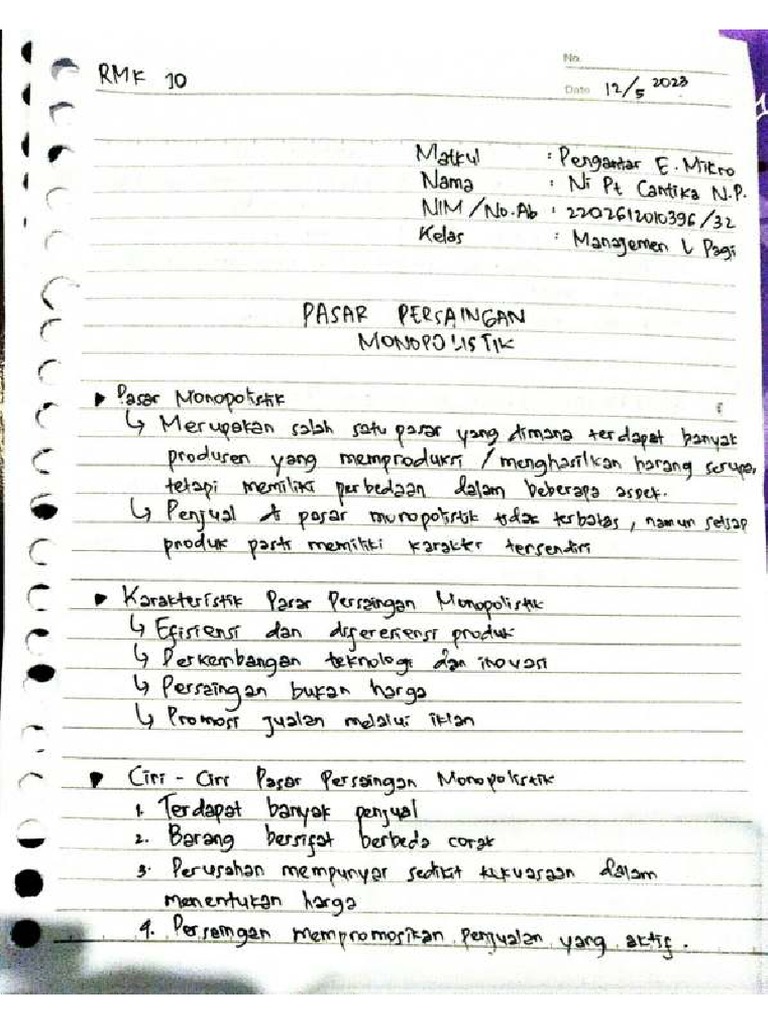 RMK 10
No
Date 12/5 2023
Matkul : Pengantar E. Mikro
Nama : Ni Pt Cantika N.P.
NIM/No.Ab : 2202612010396/32
Kelas : Manajemen L Pagi
PASAR PERSAINGAN
MONOPOLISTIK
▶ Pasar Monopolistik
↳ Merupakan salah satu pasar yang dimana terdapat banyak
produsen yang memproduksi / menghasilkan barang serupa,
tetapi memiliki perbedaan dalam beberapa aspek.
↳ Penjual di pasar monopolistik tidak terbatas, namun setiap
produk pasti memiliki karakter tersendiri
▶ Karakteristik Pasar Persaingan Monopolistik
↳ Efisiensi dan diferensiensi produk
↳ Perkembangan teknologi dan inovasi
↳ Persaingan bukan harga
↳ Promosi jualan melalui iklan
▶ Ciri - Ciri Pasar Persaingan Monopolistik
1. Terdapat banyak penjual
2. Barang bersifat berbeda corak
3. Perusahan mempunyai sedikit kekuasaan dalam
menentukan harga
4. Persaingan mempromosikan penjualan yang aktif.